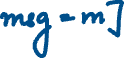 meg = m]